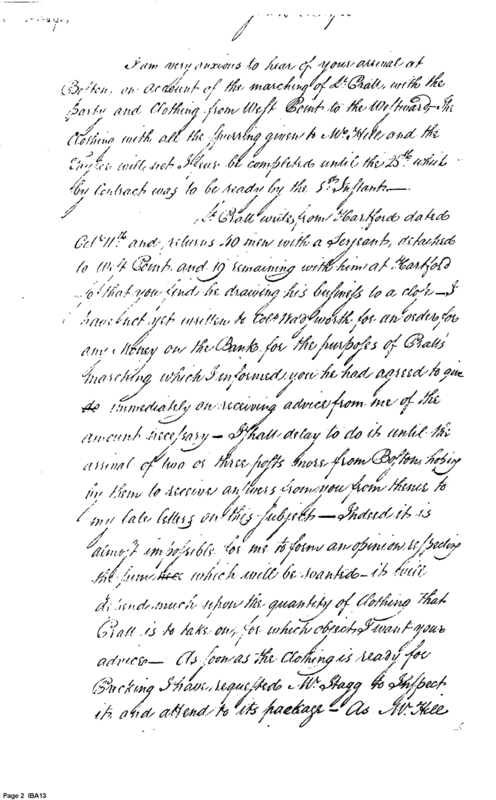 I am very anxious to hear of your arrival at
Boston, on account of the marching of Lt. Pratt, with the
party and Clothing from West Point to the Westward. The
Clothing with all the spurring given to Mr. Hill, and the
will not I fear be completed until the 25th which
by Contract was to be ready by the 5th Instant—
Lt. Pratt writes from Hartford dated
Octr. 11th and returns 40 men with a Serjeant, detached
to West Point, and 19 remaining with him at Hartford
so that you find he drawing his business to a close— I
have not yet written to Colo. Wadsworth for an order, for
any Money on the Bank for the purposes of Pratts
marching which I informed you he had agreed to give
immediately on receiving advice from me of the
amount necessary— I shall delay to do it until the
arrival of two or three posts more from Boston, hoping
by them to receive answers from you from thence to
my late letters on this subject— Indeed it is
almost impossible for me to form an opinion respecting
the sum which will be wanted— it will
depend much upon the quantity of Clothing that
Pratt is to take on, for which object, I want your
advice— As soon as the Clothing is ready for
Packing I have requested Mr. Stagg to Inspect
it, and attend to its package— As Mr. Hill
Page 2 IBA13